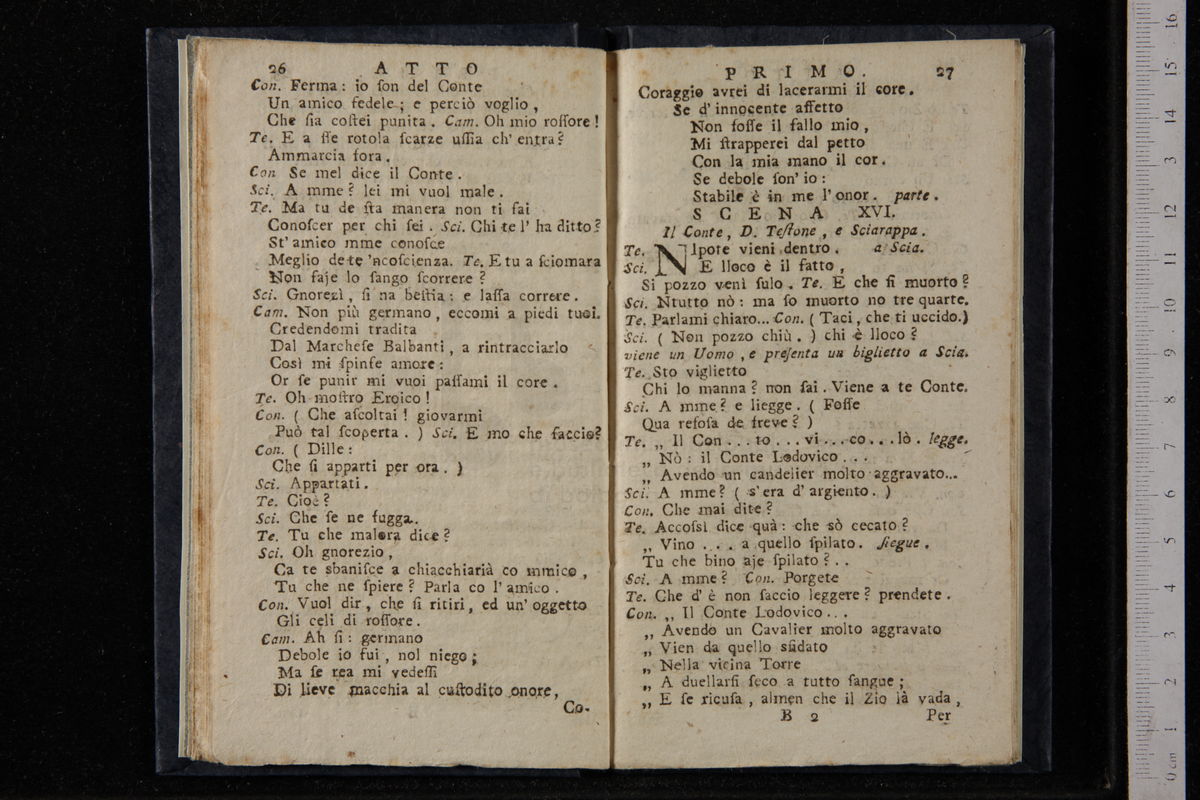 26 ATTO
Con. Ferma : io ſon del Conte
Un amico fedele ; e perciò voglio ,
Che ſia coſtei punita . Cam. Oh mio roſſore !
Te. E a ſſe rotola ſcarze uſſia ch' entra ?
Ammarcia fora .
Con Se mel dice il Conte .
Sci. A mme ? lei mi vuol male .
Te. Ma tu de ſta manera non ti fai
Conoſcer per chi ſei . Sci. Chi te l' ha ditto ?
St' amico mme conoſce
Meglio de te 'ncoſcienza . Te. E tu a ſciomara
Non faje lo ſango ſcorrere ?
Sci. Gnorezì , ſi na beſtia : e laſſa correre .
Cam. Non più germano , eccomi a piedi tuoi.
Credendomi tradita
Dal Marcheſe Balbanti , a rintracciarlo
Così mi ſpinſe amore :
Or ſe punir mi vuoi paſſami il core .
Te. Oh moſtro Eroico !
Con. ( Che aſcoltai ! giovarmi
Può tal ſcoperta . ) Sci. E mo che faccio?
Con. ( Dille :
Che ſi apparti per ora . )
Sci. Appartati .
Te. Cioè ?
Sci. Che ſe ne fugga .
Te. Tu che malora dice ?
Sci. Oh gnorezio ,
Ca te sbaniſce a chiacchiarià co mmico ,
Tu che ne ſpiere ? Parla co l' amico .
Con. Vuol dir , che ſi ritiri , ed un' oggetto
Gli celi di roſſore .
Cam. Ah ſi : germano
Debole io fui , nol niego ;
Ma ſe rea mi vedeſſi
Di lieve macchia al cuſtodito onore,
Co-
PRIMO. 27
Coraggio avrei di lacerarmi il core .
Se d' innocente affetto
Non foſſe il fallo mio ,
Mi ſtrapperei dal petto
Con la mia mano il cor .
Se debole ſon' io :
Stabile è in me l' onor . parte .
SCENA XVI.
Il Conte , D. Teſtone , e Sciarappa .
Te. NIpote vieni dentro . a Scia.
Sci. E lloco è il fatto ,
Si pozzo venì ſulo . Te. E che ſi muorto ?
Sci. Ntutto nò : ma ſo muorto no tre quarte.
Te. Parlami chiaro... Con. ( Taci , che ti uccido.)
Sci. ( Non pozzo chiù . ) chi è lloco ?
viene un Uomo , e preſenta un biglietto a Scia.
Te. Sto viglietto
Chi lo manna ? non ſai . Viene a te Conte.
Sci. A mme ? e liegge . ( Foſſe
Qua refoſa de freve ? )
Te. „ Il Con . . . to . . . vi . . . co . . . lò . legge.
„ Nò : il Conte Lodovico . . .
„ Avendo un candelier molto aggravato...
Sci. A mme ? ( s' era d' argiento . )
Con. Che mai dite ?
Te. Accoſsì dice quà : che sò cecato ?
„ Vino . . . a quello ſpilato . ſiegue .
Tu che bino aje ſpilato ? . .
Sci. A mme ? Con. Porgete
Te. Che d' è non ſaccio leggere ? prendete .
Con. „ Il Conte Lodovico . . .
„ Avendo un Cavalier molto aggravato
„ Vien da quello sfidato
„ Nella vicina Torre
„ A duellarſi ſeco a tutto ſangue ;
„ E ſe ricuſa , almen che il Zio là vada ,
B 2 Per